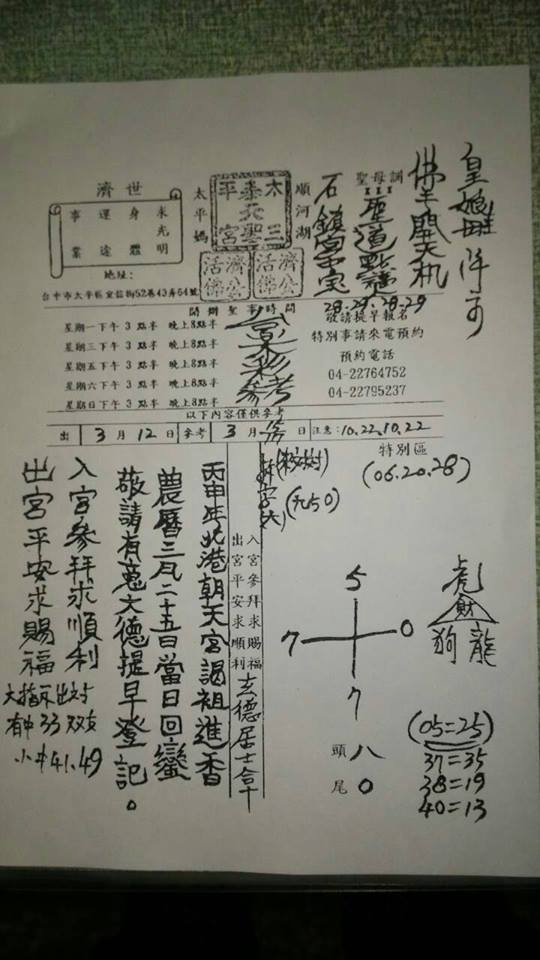 皇娘母降示
佛手開天机
聖母調
聖道點
石鎮宮
順河湖
太
泰
平
三聖宮
太平媽
濟公活佛
濟公活佛
濟世
求光明
身體
運途
事業
地址:
台中市太平區宜佰街52巷43弄64號
28.29.28.29
開辦聖事時間
敬請提早報名
特別事請來電預約
預約電話
04-22764752
04-22795237
星期一下午3點半 晚上8點半
星期三下午3點半 晚上8點半
星期五下午3點半 晚上8點半
星期六下午3點半 晚上8點半
星期日下午3點半 晚上8點半
參考
以下內容僅供參考
出 3月12日 參考 3月 日 注意:10.22.10.22
特別區
(06.20.28)
(九50)
入宮參拜求賜福
出宮平安求順利
玄德居士合十
丙申年北港朝天宮謁祖進香
農曆三月二十五日當日回鑾
敬請有意大德提早登記。
入宮參拜求順利
出宮平安求賜福
大指不出对5
有中33双女
小中41.49
5
7 0
7
頭 八
尾 0
虎
財
狗 龍
(05=25)
37=35
38=19
40=13